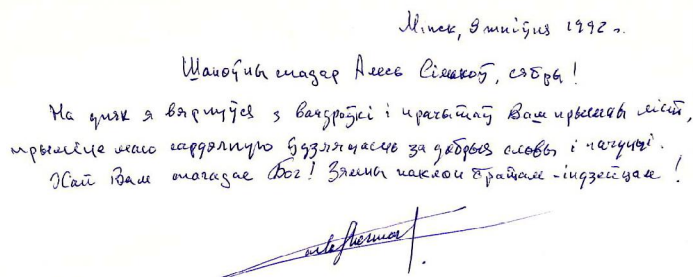 Мінск, 9 жніўня 1992 г.
Шаноўны спадар Алесь Сімакоў, сябры!
На днях я вярнуўся з вандроўкі і прачытаў Вам прыемны ліст,
прыміце маю сардэчную ўдзячнасць за добрыя словы і пачуцці.
Хай Вам спагадае Бог! Зямны паклон братам-індзейцам!